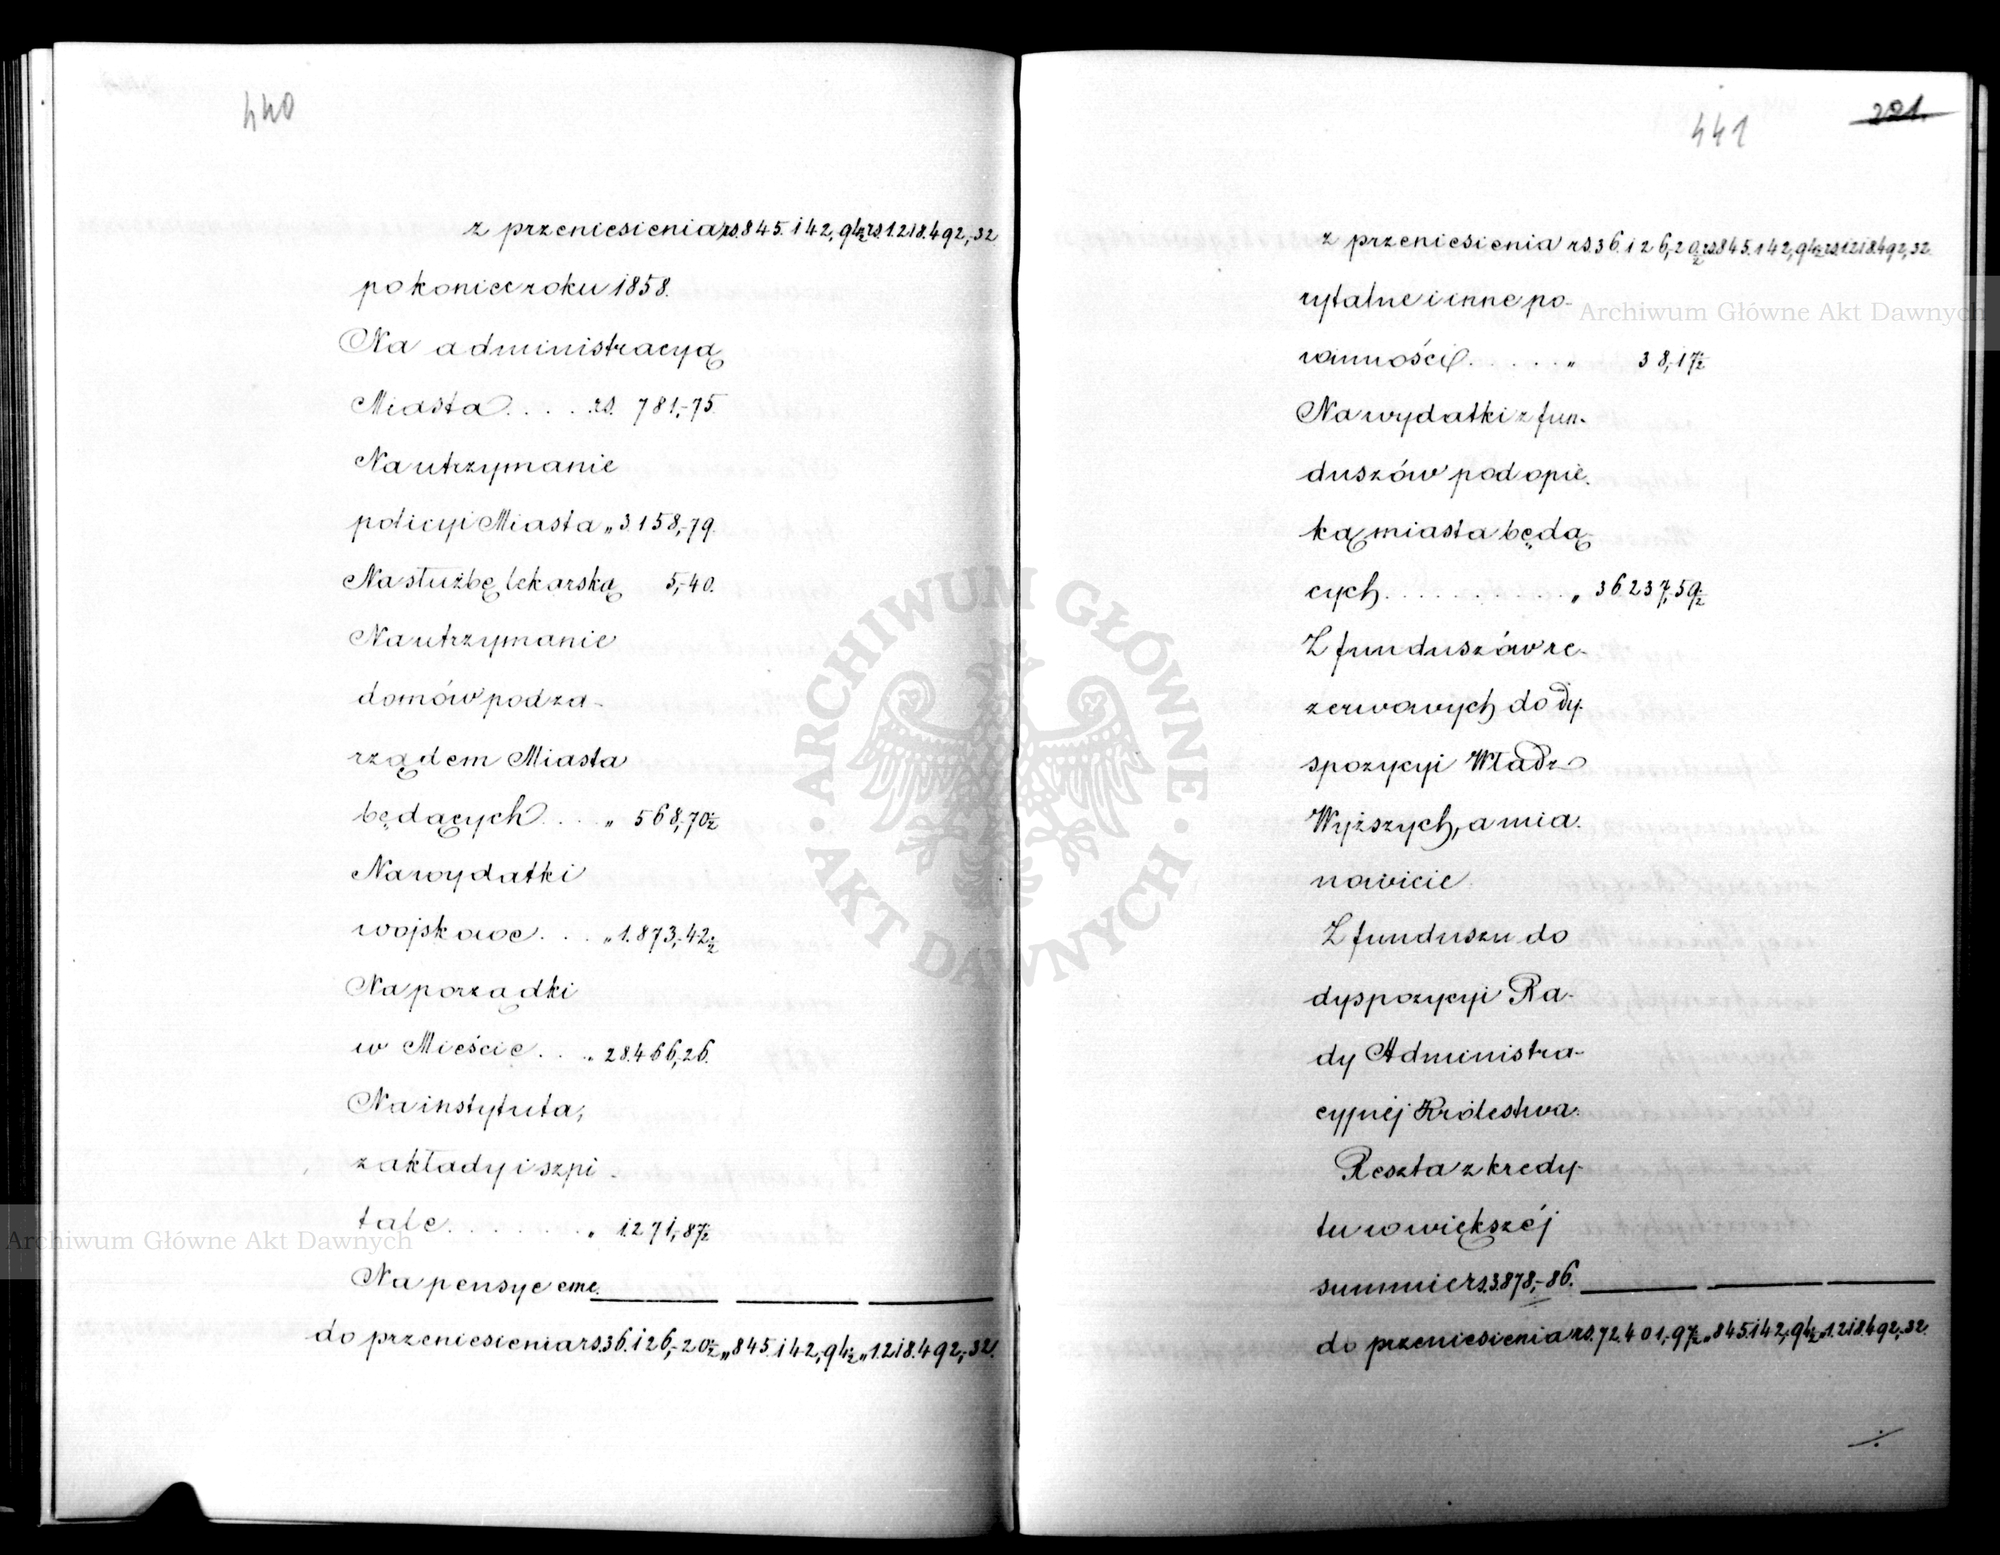 440
z przeniesienia rs. 845.142,94½ rs. 1.218.492,-32
po koniec roku 1858.
Na administracyą
Miasta . . . . rs. 781,-75.
Na utrzymanie
policyi Miasta „ 3158,-79.
Na służbę lekarską 5,-40.
Na utrzymanie
domów pod za-
rządem Miasta
będących . . . „ 568,-70½
Na wydatki
wojskowe . . . „ 1.873,-42½
Na porządki
w Mieście . . . „ 28.466,26.
Na instytuta,
zakłady i szpi-
tale . . . . . . . „ 1271,-87½
Na pensye eme-
do przeniesienia rs. 36.126,-20½ „ 845.142,-94½ „ 1.218.492,-32.
441
221.
z przeniesienia rs. 36.126,-20½ rs. 845.142,94½ rs. 1218.492,32.
rytalne i inne po-
winności . . . . . „ 38,-17½
Na wydatki z fun-
duszów pod opie-
ką miasta będą-
cych . . . . . . . . . . „ 36237,59½
Z funduszów re-
zerwowych do dy-
spozycyi Władz
Wyższych, a mia-
nowicie
Z funduszu do
dyspozycyi Ra-
dy Administra-
cyjnéj Królestwa.
Reszta z kredy-
tu w większéj
summie rs. 3.878,-86.
do przeniesienia rs. 72.401,-97½ „ 845.142,-94½ „ 1.218.492,-32.
Archiwum Główne Akt Dawnych
Archiwum Główne Akt Dawnych
ARCHIWUM GŁÓWNE AKT DAWNYCH